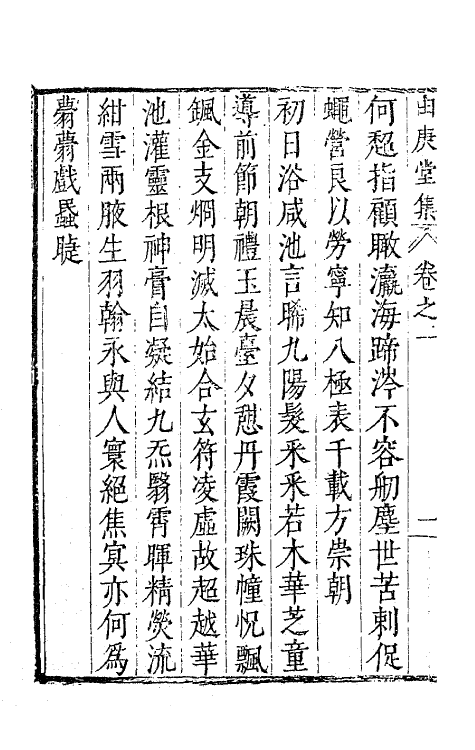 由庚堂集 卷之一 二
何愁指顧瞰瀛海蹄涔不容舠塵世苦剌促
蠅營良以勞寧知八極表千載方崇朝
初日浴咸池言晞九陽髮采采若木華芝童
導前節朝禮玉晨臺夕憇丹霞闕珠幢怳飄
颻金支烱明滅太始合玄符凌虛故超越華
池灌靈根神膏自凝結九炁翳霄暉精熒流
紺雪兩腋生羽翰永與人寰絕焦冥亦何為
薨薨戲蟁睫